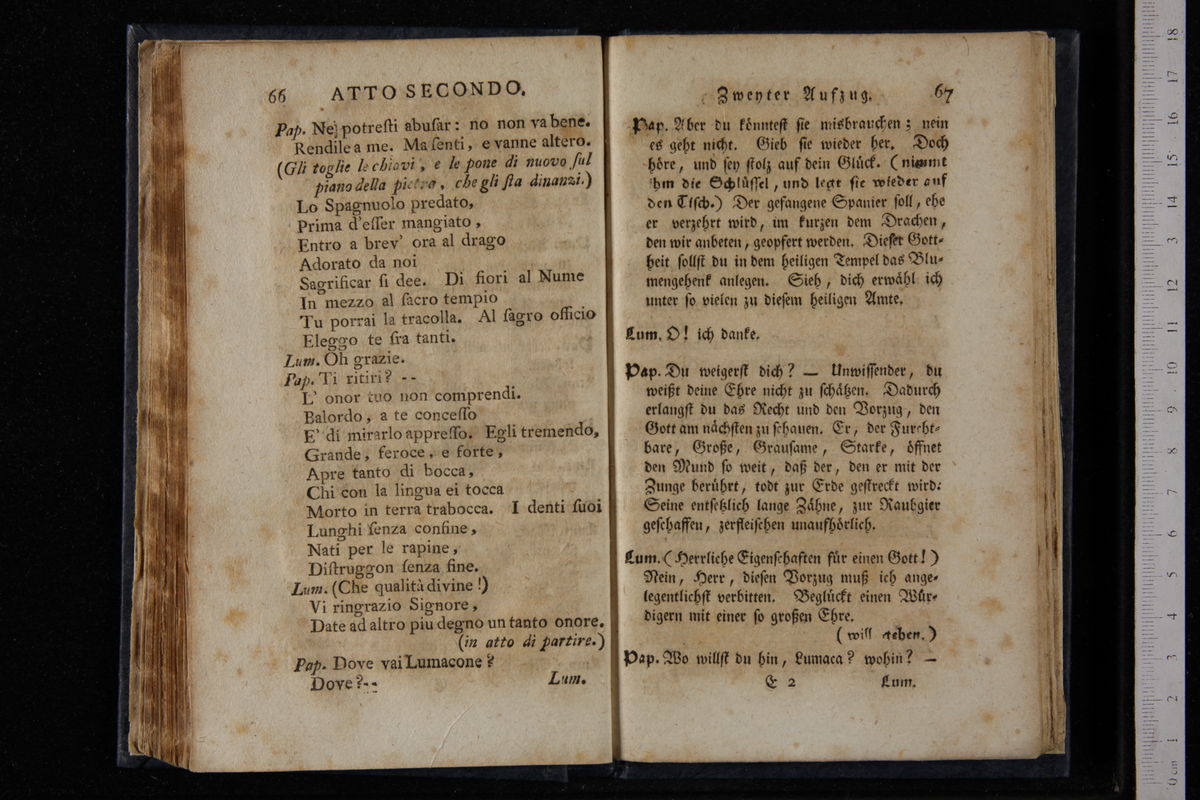 66 ATTO SECONDO.
Pap. Ne potreſti abuſar: no non va bene.
Rendile a me. Ma ſenti, e vanne altero.
(Gli toglie le chiavi, e le pone di nuovo ſul
piano della pietra, che gli ſta dinanzi.)
Lo Spagnuolo predato,
Prima d'eſſer mangiato,
Entro a brev' ora al drago
Adorato da noi
Sagrificar ſi dee. Di fiori al Nume
In mezzo al ſacro tempio
Tu porrai la tracolla. Al ſagro officio
Eleggo te fra tanti.
Lum. Oh grazie.
Pap. Ti ritiri? --
L' onor tuo non comprendi.
Balordo, a te conceſſo
E' di mirarlo appreſſo. Egli tremendo,
Grande, feroce, e forte,
Apre tanto di bocca,
Chi con la lingua ei tocca
Morto in terra trabocca. I denti ſuoi
Lunghi ſenza confine,
Nati per le rapine,
Diſtruggon ſenza fine.
Lum. (Che qualità divine!)
Vi ringrazio Signore,
Date ad altro piu degno un tanto onore.
(in atto di partire.)
Pap. Dove vai Lumacone?
Dove?--
Lum.
Zweyter Aufzug. 67
Pap. Aber du könnteſt ſie misbrauchen; nein
es geht nicht. Gieb ſie wieder her. Doch
höre, und ſey ſtolz auf dein Glück. (nimmt
ihm die Schlüſſel, und legt ſie wieder auf
den Tiſch.) Der gefangene Spanier ſoll, ehe
er verzehrt wird, im kurzen dem Drachen,
den wir anbeten, geopfert werden. Dieſer Gott-
heit ſollſt du in dem heiligen Tempel das Blu-
mengehenk anlegen. Sieh, dich erwähl ich
unter ſo vielen zu dieſem heiligen Amte.
Lum. O! ich danke.
Pap. Du weigerſt dich? — Unwiſſender, du
weißt deine Ehre nicht zu ſchätzen. Dadurch
erlangſt du das Recht und den Vorzug, den
Gott am nächſten zu ſchauen. Er, der Furcht-
bare, Große, Grauſame, Starke, öffnet
den Mund ſo weit, daß der, den er mit der
Zunge berührt, todt zur Erde geſtreckt wird:
Seine entſetzlich lange Zähne, zur Raubgier
geſchaffen, zerfleiſchen unaufhörlich.
Lum. (Herrliche Eigenſchaften für einen Gott!)
Nein, Herr, dieſen Vorzug muß ich ange-
legentlichſt verbitten. Beglückt einen Wür-
digern mit einer ſo großen Ehre.
(will gehen.)
Pap. Wo willſt du hin, Lumaca? wohin? —
E 2 Lum.
0 cm 1 2 3 4 5 6 7 8 9 10 11 12 13 14 15 16 17 18